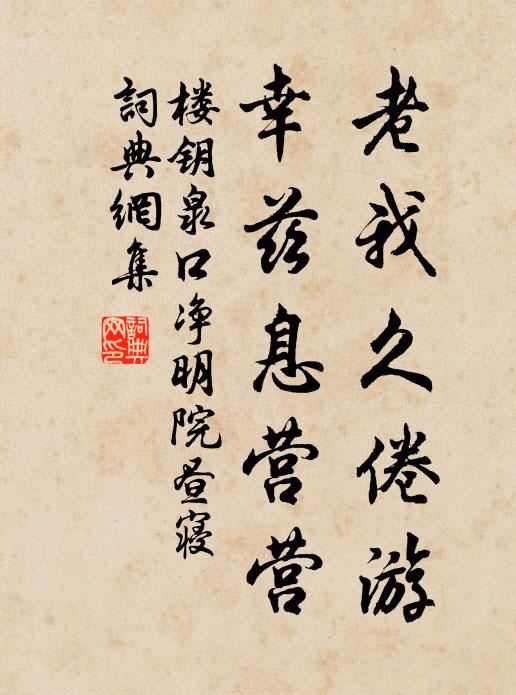 老我久倦游
幸兹息营营
楼钥泉口净明院昼寝
詞典網集
詞典网印